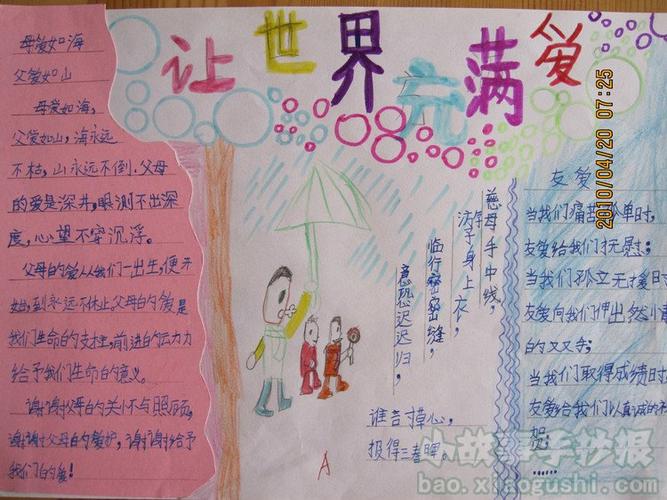 让世界充满爱
母爱如海
父爱如山
母爱如海,
父爱如山,海永远
不枯,山永远不倒.父母
的爱是深井,眼测不出深
度,心望不穿沉浮。
父母的爱从我们一出生,便开
始,到永远不休止.父母的爱是
我们生命的支柱,前进的动力
给予我们生命的意义。
谢谢父母的关怀与照顾,
谢谢父母的爱护,谢谢给予
我们的爱!
慈母手中线,
游子身上衣,
临行密密缝,
意恐迟迟归,
谁言寸草心,
报得三春晖。
A
友爱
当我们痛苦孤单时,
友爱给我们抚慰;
当我们孤立无援时
友爱向我们伸出
的双手;
当我们取得成绩时
友爱给我们以真诚的祝
贺;
……
2010/04/20 07:25
小故事手抄报
bao.xiaogushi.com